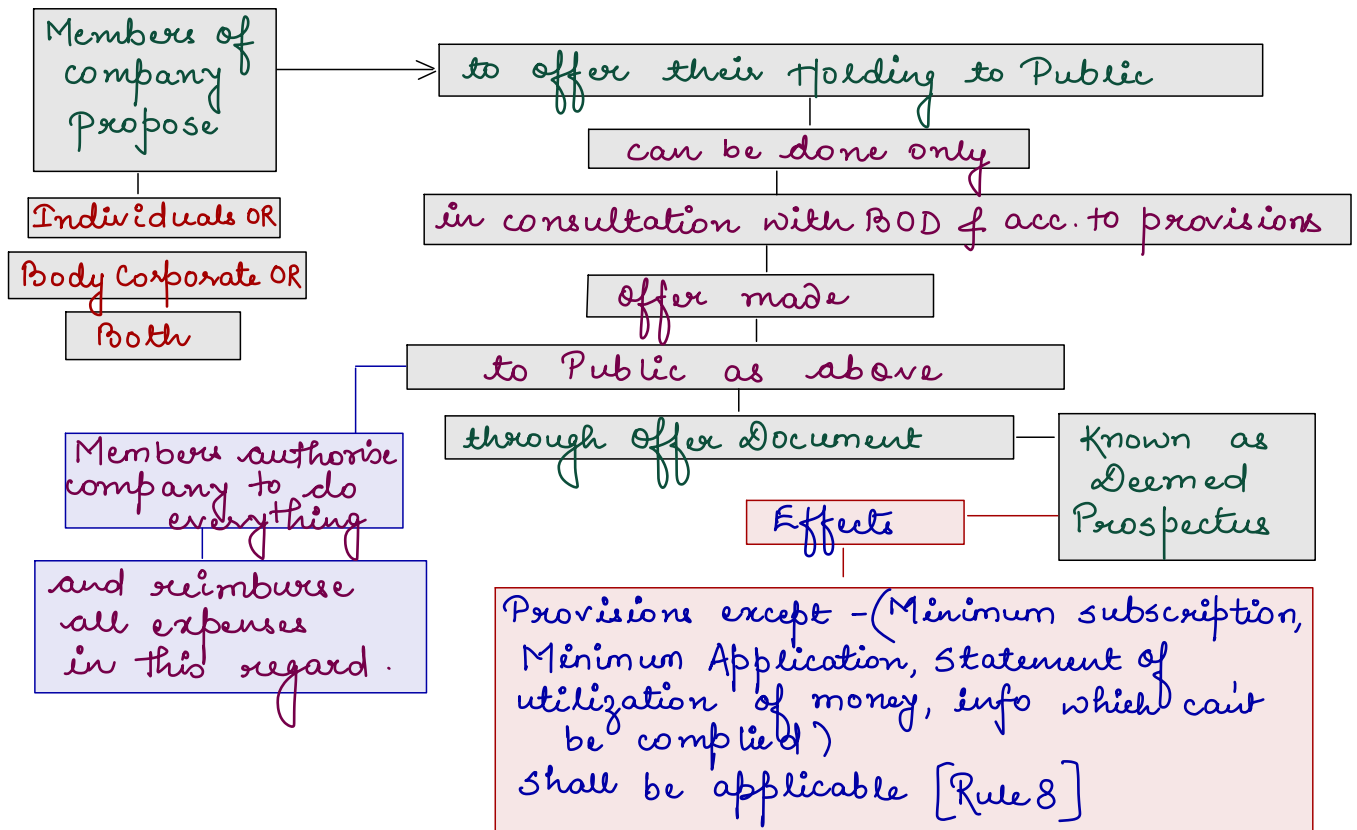 Members of
company
Propose
Individuals OR
Body Corporate OR
Both
to offer their Holding to Public
can be done only
in consultation with BOD & acc. to provisions
offer made
to Public as above
through Offer Document
Known as
Deemed
Prospectus
Members authorise
company to do
everything
and reimburse
all expenses
in this regard.
Effects
Provisions except -(Minimum subscription,
Minimum Application, Statement of
utilization of money, info which can't
be complied)
shall be applicable [Rule 8]